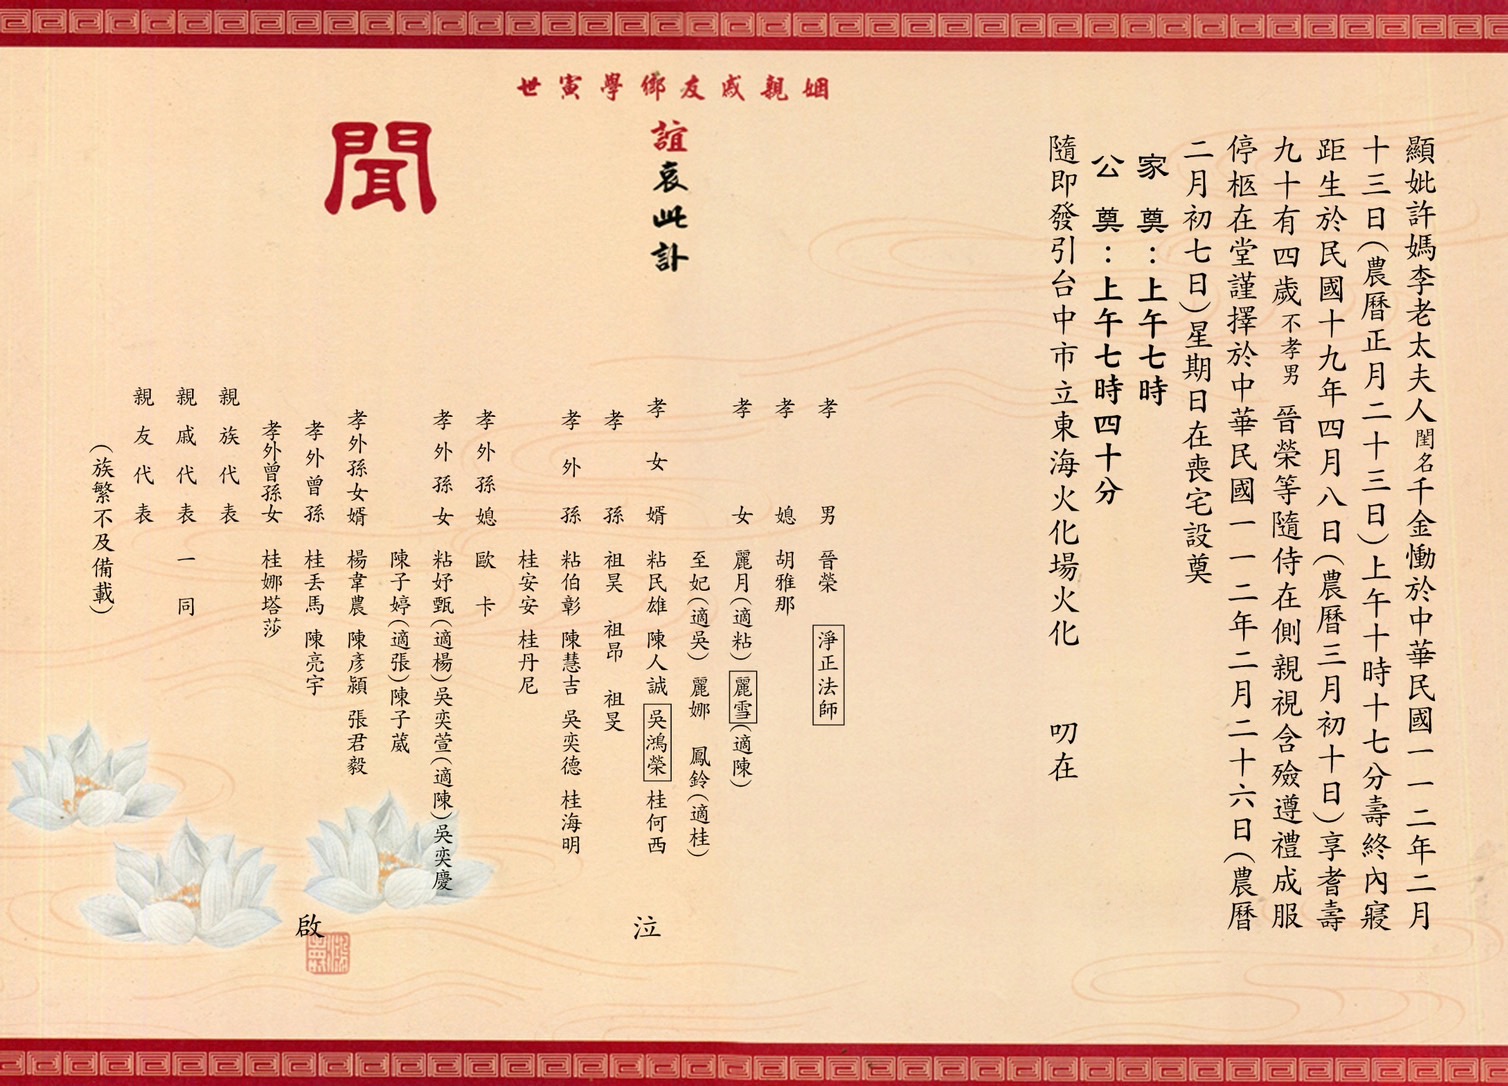 顯妣許媽李老太夫人閨名千金慟於中華民國一一二年二月
十三日(農曆正月二十三日)上午十時十七分壽終內寢
距生於民國十九年四月八日(農曆三月初十日)享耆壽
九十有四歲不孝男晉榮等隨侍在側親視含殮遵禮成服
停柩在堂謹擇於中華民國一一二年二月二十六日(農曆
二月初七日)星期日在喪宅設奠
家奠：上午七時
公奠：上午七時四十分
隨即發引台中市立東海火化場火化 叨在
姻親戚友鄉學寅世
誼哀此訃
聞
孝男 晉榮 淨正法師
孝媳 胡雅那
孝女 麗月(適粘) 麗雪(適陳)
至妃(適吳) 麗娜 鳳鈴(適桂)
孝女婿 粘民雄 陳人誠 吳鴻榮 桂何西 泣
孝孫 祖昊 祖昂 祖旻
孝外孫 粘伯彰 陳慧吉 吳奕德 桂海明
桂安安 桂丹尼
孝外孫媳 歐卡
孝外孫女 粘妤甄(適楊)吳奕萱(適陳)吳奕慶
陳子婷(適張)陳子葳
孝外孫女婿 楊韋農 陳彥潁 張君毅
孝外曾孫 桂丟馬 陳亮宇 啟
孝外曾孫女 桂娜塔莎
親族代表
親戚代表一同
親友代表
(族繁不及備載)